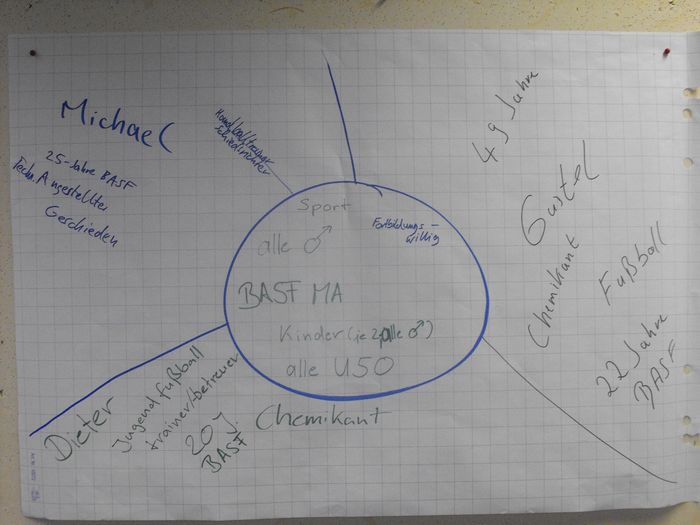 Michael
25-Jahre BASF
Techn. Angestellter
Geschieden
Handballtrainer
Schiedsrichter
49 Jahre
Gustel
Chemikant
Fußball
22 Jahre
BASF
Sport
Fortbildungs-
willig
alle ♂
BASF MA
Kinder (je 2, alle ♂)
alle U50
Dieter
Jugendfußball
trainer/-betreuer
20 J.
BASF
Chemikant